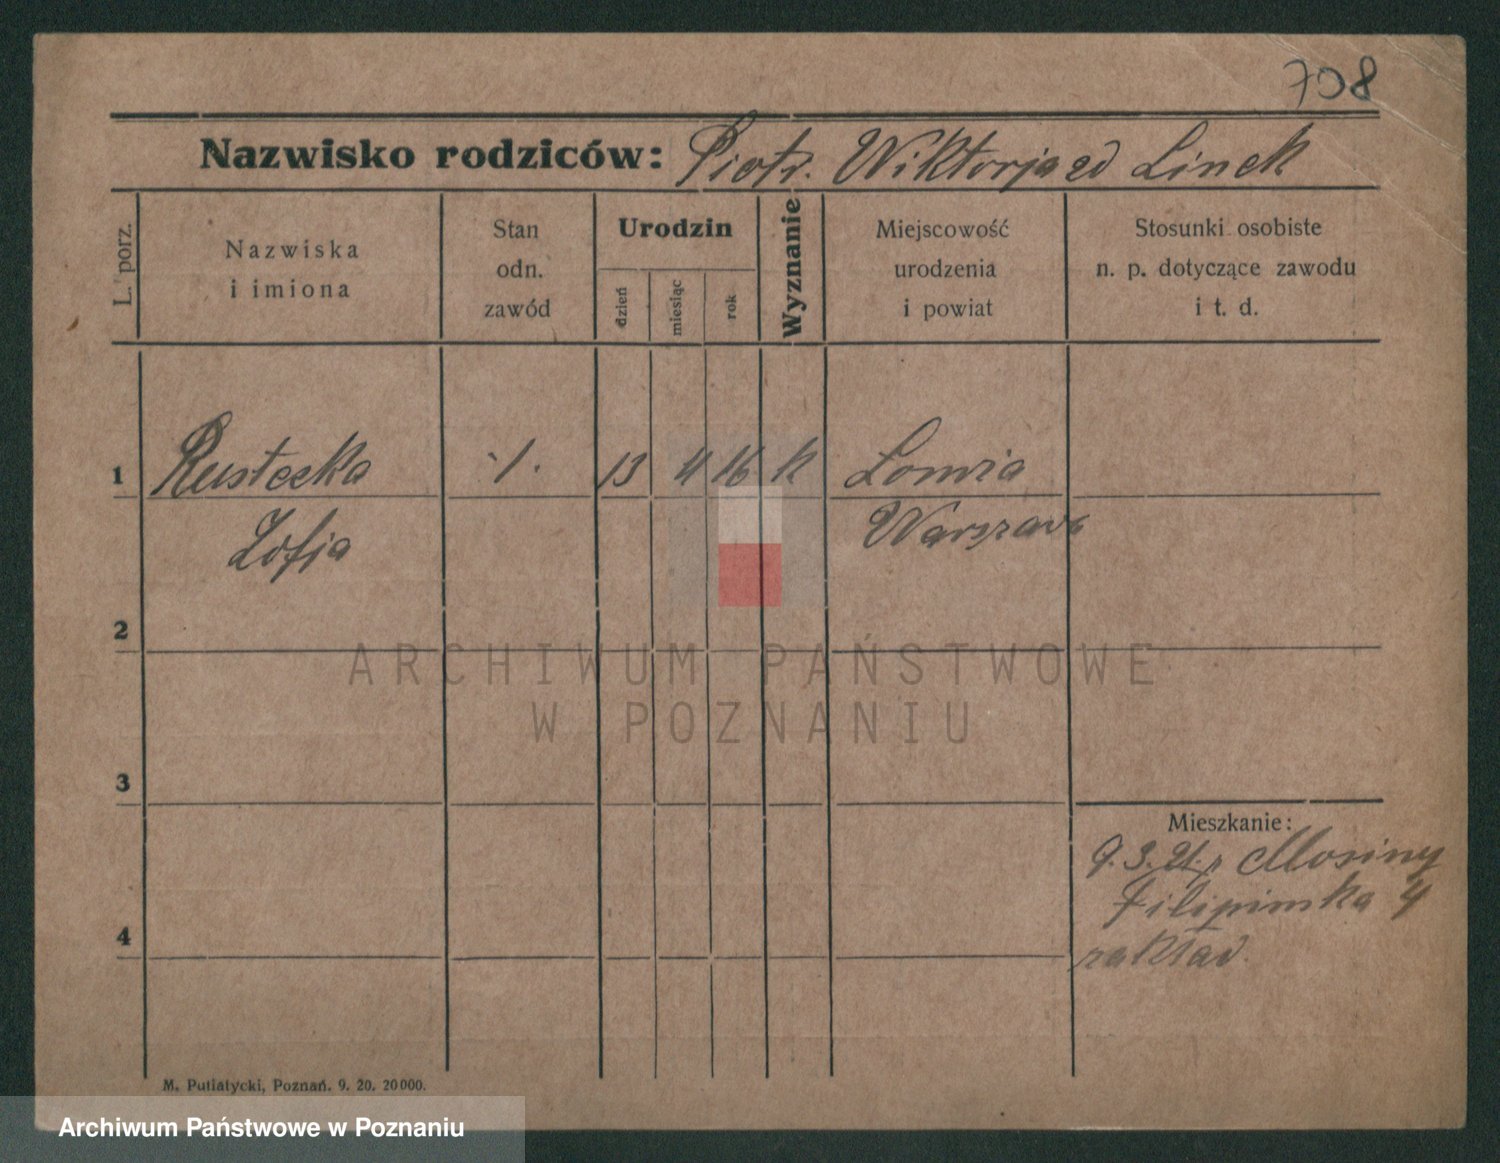 708
Nazwisko rodziców: Piotr. Wiktorja zd Linek
L. porz.
Nazwiska
i imiona
Stan
odn.
zawód
Urodzin
dzień
miesiąc
rok
Wyznanie
Miejscowość
urodzenia
i powiat
Stosunki osobiste
n. p. dotyczące zawodu
i t. d.
1 Rustecka -/. 13 4 16 k Lomia
Zofja Warszawa
2
ARCHIWUM PAŃSTWOWE
W POZNANIU
3
Mieszkanie:
9.3.21. z Mosiny
Filipinska 4
4
zakład.
M. Putiatycki, Poznań. 9. 20. 20000.
Archiwum Państwowe w Poznaniu